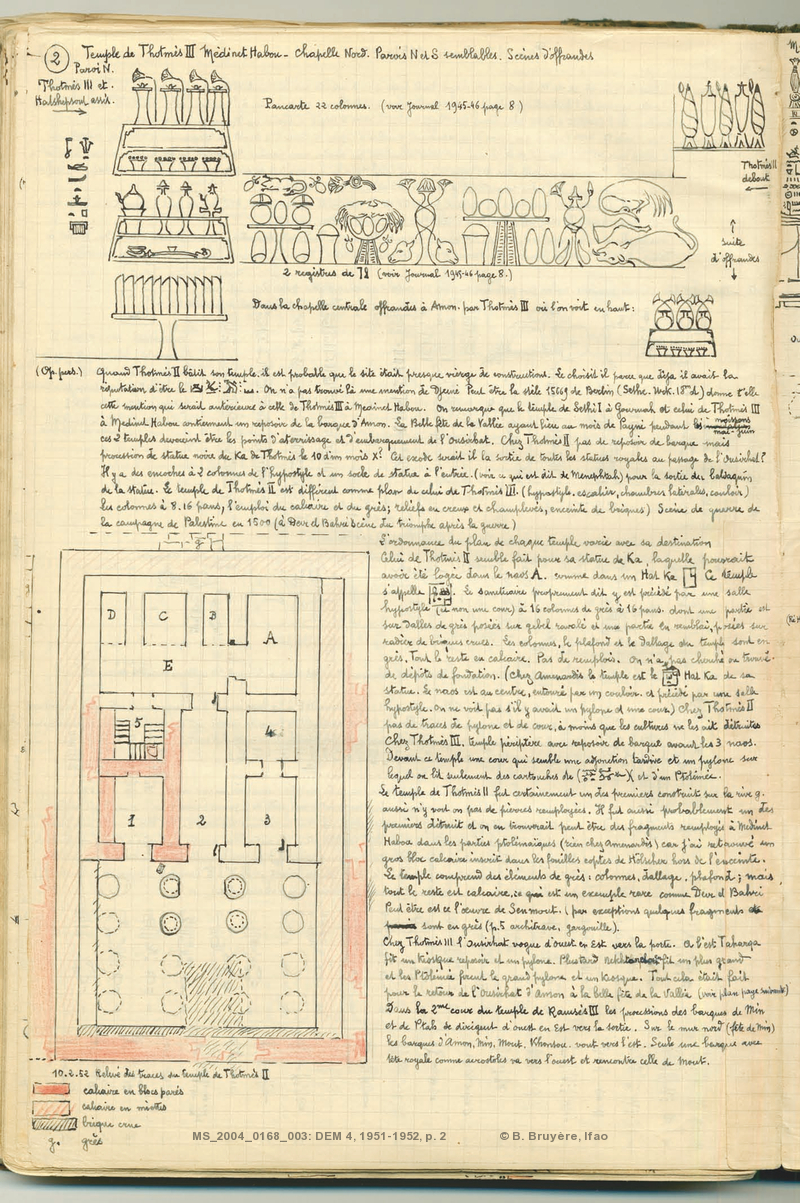 2
Temple de Thotmès III Médinet Habou - Chapelle Nord. Parois N et S semblables. Scènes d'offrandes
Paroi N.
Thotmès III et
Hatshepsout assis.
Pancarte 22 colonnes. (voir Journal 1945-46 page 8.)
Thotmès II
debout
Suite
d'offrandes
2 registres de (voir Journal 1945-46 page 8.)
Dans la chapelle centrale offrandes à Amon. par Thotmès III où l'on voit en haut:
(Op. pers.) Quand Thotmès II bâtit son temple. il est probable que le site était presque vierge de constructions. Le choisit il parce que déjà il avait la
réputation d'être le On n'a pas trouvé là une mention de Djemé Peut être la stèle 15669 de Berlin (Sethe. Urk. 18e d) donne t'elle
cette mention qui serait antérieure à celle de Thotmès III à Médinet Habou. On remarque que le temple de Sethi I à Gournah et celui de Thotmès III
à Médinet Habou contiennent un reposoir de la barque d'Amon. La Belle fête de la Vallée ayant lieu au mois de Payni pendant les moissons
mai-juin
ces 2 temples devaient être les points d'atterrissage et d'embarquement de l'Ousirhat. Chez Thotmès II pas de reposoir de barque mais
procession de statue noire du Ka de Thotmès le 10 d'un mois X? Cet exode serait il la sortie de toutes les statues royales au passage de l'Ousirhat?
Il y a des encoches à 2 colonnes de l'hypostyle et un socle de statue à l'entrée. (voir ce qui est dit de Menephtah) pour la sortie du baldaquin
de la statue. Le temple de Thotmès II est différent comme plan de celui de Thotmès III. (hypostyle, escalier, chambres latérales, couloir)
les colonnes à 8.16 pans, l'emploi du calcaire et du grès; reliefs en creux et champlevés, enceinte de briques) Scène de guerre de
la campagne de Palestine en 1500 (à Deir el Bahri scène du triomphe après la guerre)
L'ordonnance du plan de chaque temple varie avec sa destination
Celui de Thotmès II semble fait pour sa statue de Ka, laquelle pourrait
avoir été logée dans le naos A. comme dans un Hat Ka Ce temple
s'appelle Le sanctuaire proprement dit y est précédé par une salle
hypostyle (et non une cour) à 16 colonnes de grès à 16 pans. dont une partie est
sur dalles de grès posées sur gebel ravalé et une partie en remblai, posées sur
radier de briques crues. Les colonnes, le plafond et le dallage du temple sont en
grès. Tout le reste en calcaire. Pas de remplois. On n'a pas cherché ou trouvé
de dépôts de fondation. (Chez Amenardis le temple est le Hat Ka de sa
statue. Le naos est au centre, entouré par un couloir et précédé par une salle
hypostyle. On ne voit pas s'il y avait un pylone et une cour) Chez Thotmès II
pas de traces de pylone et de cour, à moins que les cultures ne les ait détruites
Chez Thotmès III. temple périptère avec reposoir de barque avant les 3 naos.
Devant ce temple une cour qui semble une adjonction tardive et un pylone sur
lequel on lit seulement des cartouches de et d'un Ptolémée.
Le temple de Thotmès II fut certainement un des premiers construit sur la rive g.
aussi n'y voit on pas de pierres remployées. Il fut aussi probablement un des
premiers détruit et on en trouverait peut être des fragments remployés à Médinet
Habou dans les parties ptolémaïques (rien chez Amenardis) car j'ai retrouvé un
gros bloc calcaire inscrit dans les fouilles coptes de Hölscher hors de l'enceinte.
Le temple comprend des éléments de grès: colonnes, dallage, plafond; mais
tout le reste est calcaire, ce qui est un exemple rare comme Deir el Bahri
Peut être est ce l'œuvre de Senmout. (par exceptions quelques fragments
sont en grès (p. 5 architrave, gargouille).
Chez Thotmès III l'Ousirhat vogue d'ouest en Est vers la porte. A l'est Taharqa
fit un kiosque reposoir et un pylone. Plus tard fit un plus grand
et les Ptolémées firent le grand pylone et un kiosque. Tout cela était fait
pour le retour de l'Ousirhat d'Amon à la belle fête de la Vallée (voir plan page suivante)
Dans la 2me cour du temple de Ramsès III les processions des barques de Min
et de Ptah se dirigent d'ouest en Est vers la sortie. Sur le mur nord (fête de Min)
les barques d'Amon, Min, Mout, Khonsou vont vers l'est. Seule une barque avec
tête royale comme acrostoles va vers l'ouest et rencontre celle de Mout.
g
D
C
B
A
E
5
4
1
2
3
10.2.52 Relevé des traces du temple de Thotmès II
calcaire en blocs parés
calcaire en miettes
brique crue
g. grès
MS_2004_0168_003: DEM 4, 1951-1952, p. 2
© B. Bruyère, Ifao